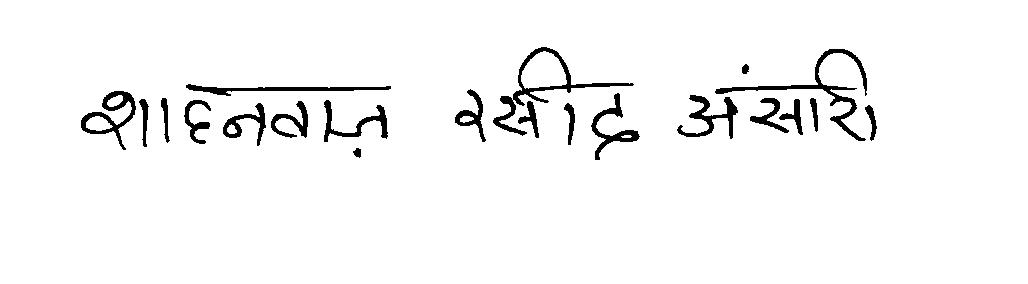 शाहनवाज़ रसीद अंसारी